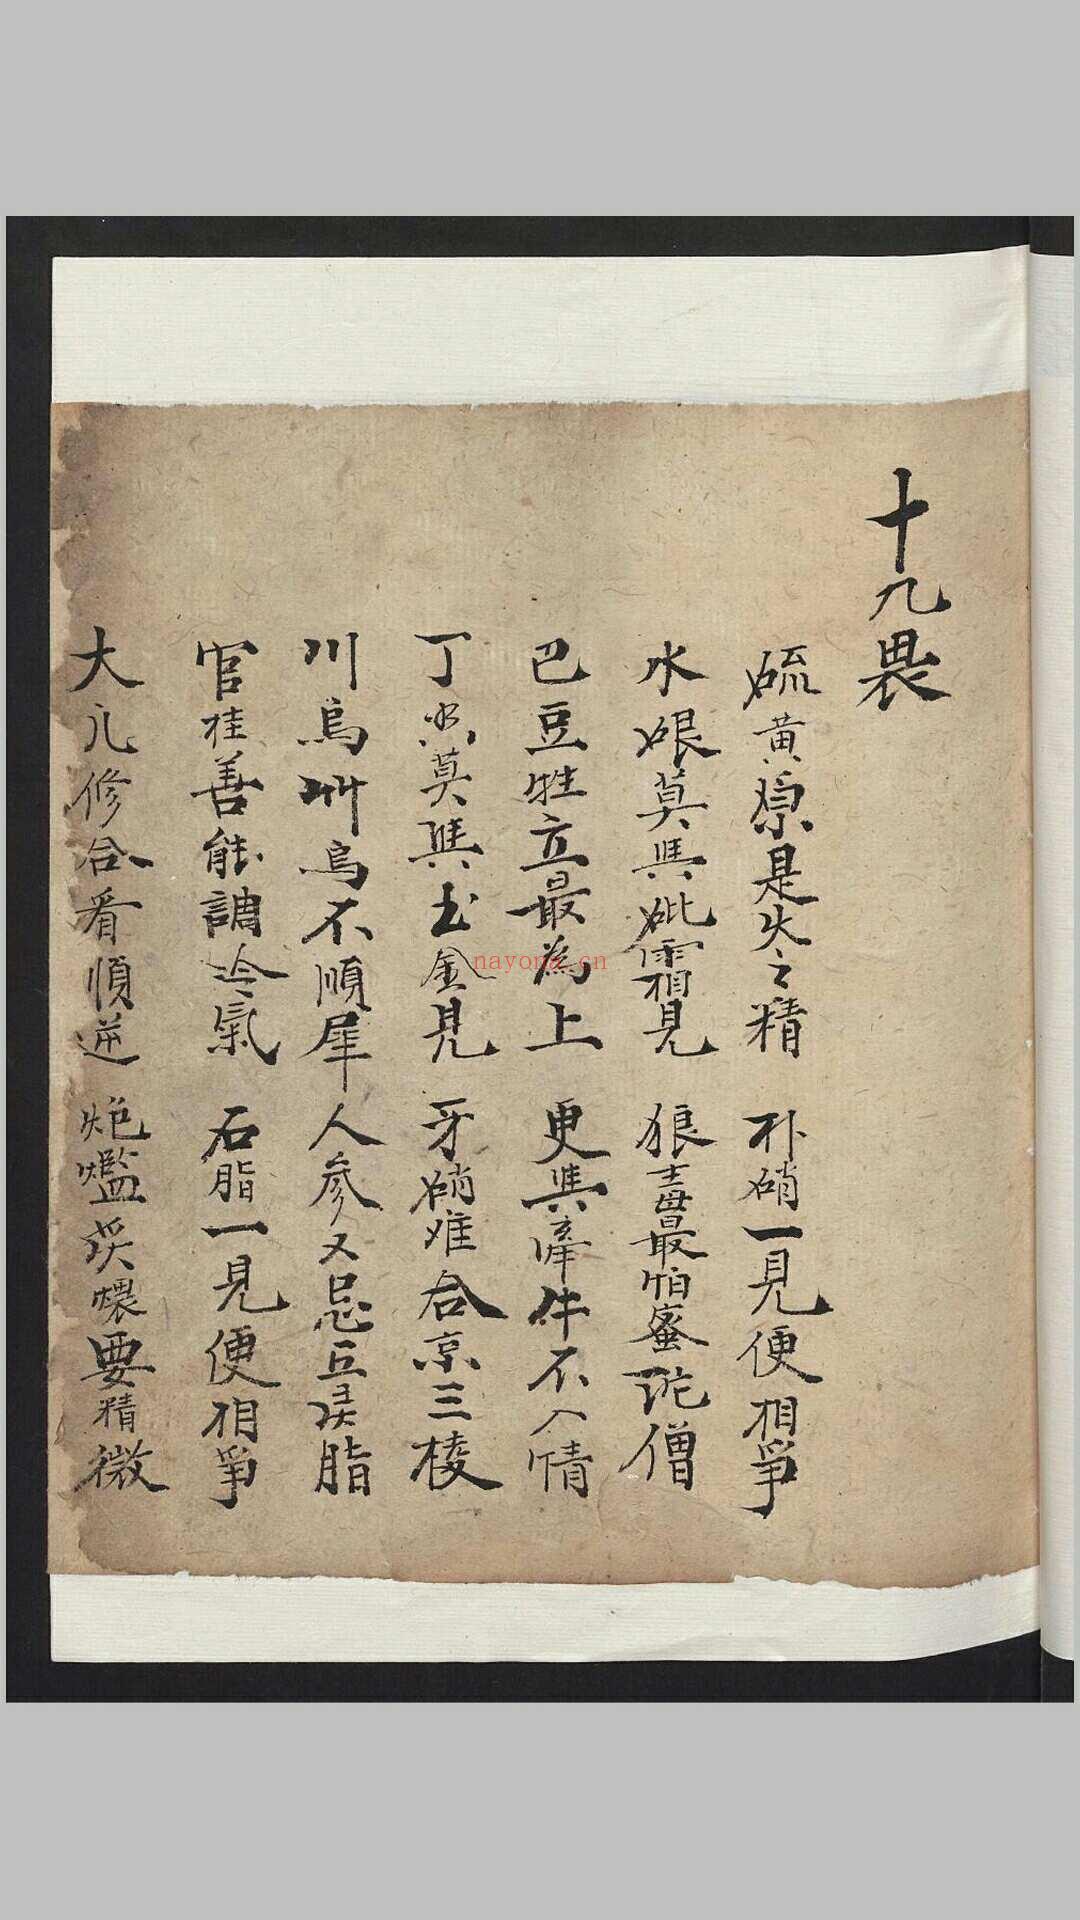 十九畏
硫黄原是火之精 朴硝一見便相爭
水艮莫與砒霜見 狼毒最怕蜜陀僧
巴豆牲立最為上 更與牽牛不入情
丁香莫與玉金見 牙硝难合京三棱
川烏艸烏不順犀 人參又忌五灵脂
官桂善能調冷氣 石脂一見便相爭
大凡修合看順逆 炮爁煨要精微
nayona.cn